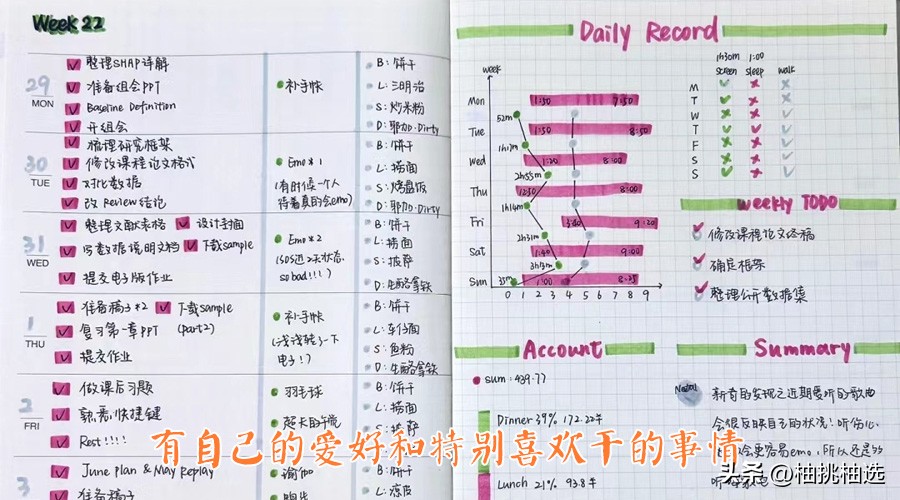 Week 22
29
MON
整理SHAP详解
准备组会PPT
Baseline Definition
开组会
补手帐
B: 饼干
L: 三明治
S: 炒米粉
D: 耶加·Dirty
30
TUE
梳理研究框架
修改课程论文格式
对比数据
改Review结论
Emo*1
(有时候一个人
待着真的会emo)
B: 饼干
L: 捞面
S: 烤盘饭
D: 耶加·Dirty
31
WED
整理文献表格 设计封面
写数据说明文档 下载sample
提交电子版作业
Emo*2
so bad!!!)
B: 饼干
L: 捞面
S: 披萨
D: 生酪拿铁
1
THU
准备稿子*2 下载sample
复习第一章PPT (part2)
提交作业
补手帐
电子!)
B: 饼干
L: 车仔面
S: 鱼粉
D: 生酪拿铁
2
FRI
做课后习题
熟悉快捷键
Rest!!!!
羽毛球
B: 饼干
L: 捞面
3
June Plan & May Replay
准备稿子
瑜伽
B: 饼干
L: 凉皮
Daily Record
week
Mon
1:50 9:50
52m
Tue
1:50 8:50
1h17m
Wed
1:20 8:00
2h55m
Thu
12:30 8:00
1h14m
Fri
9:20
2h31m
Sat
1:40 9:00
3h13m
Sun
35m
1:00 8:35
0 1 2 3 4 5 6 7 8 9
1h30m 1:00
screen sleep walk
M
T
W
T
F
S
S
Weekly TODO
修改课程论文终稿
确定框架
整理公开数据集
Account
sum: 439.77
Dinner 39% 172.22半
Lunch 21% 93.8半
Summary
新奇的发现之近期爱听的歌曲
会很反映自己的状况!听伤心
有自己的爱好和特别喜欢干的事情
头条 @柚挑柚选